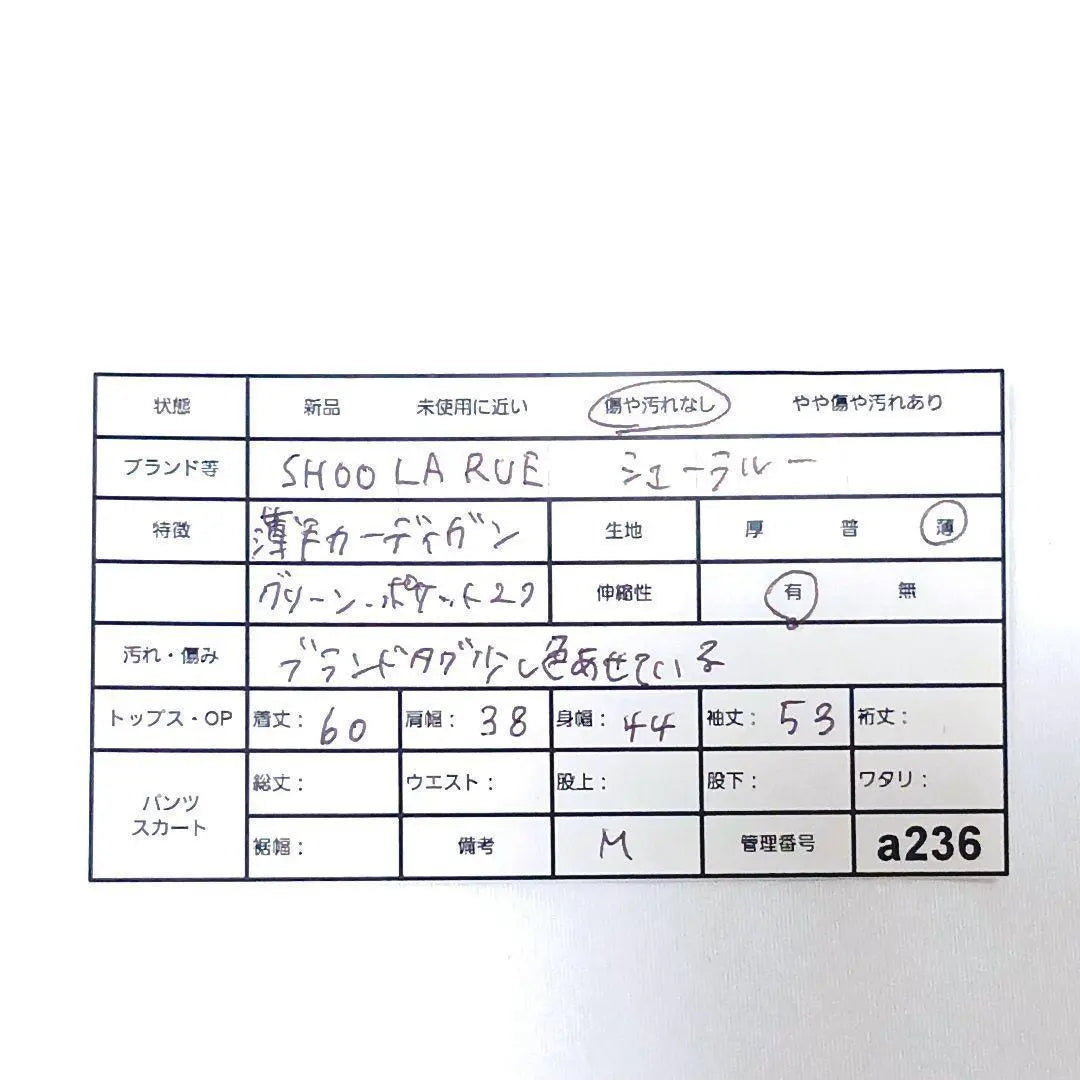 状態 新品 未使用に近い 傷や汚れなし やや傷や汚れあり
ブランド等 SHOO LA RUE シューラルー
特徴 薄手カーディガン 生地 厚 普 薄
グリーン・ポケット2つ 伸縮性 有 無
汚れ・傷み ブランドタグ少し色あせている
トップス・OP 着丈： 60 肩幅： 38 身幅： 44 袖丈： 53 裄丈：
パンツ スカート 総丈： ウエスト： 股上： 股下： ワタリ：
裾幅： 備考 M 管理番号 a236